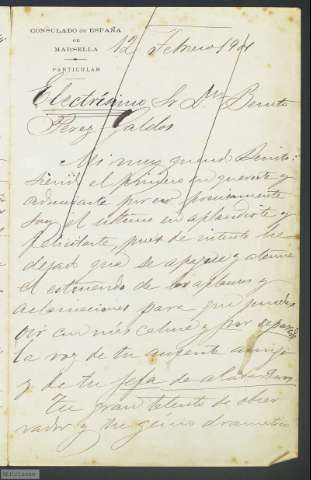 CONSULADO DE ESPAÑA
EN
MARSELLA
PARTICULAR
12 Febrero 1901
Electrísimo Sr Dn Benito
Perez Galdos
Mi muy querido Benito:
siendo el primero en quererte y
admirarte por eso precisamente
soy el último en aplaudirte y
felicitarte, pues de intento he
dejado que se apague y atenue
el estruendo de los aplausos y
aclamaciones para que puedas
oir con más calma y por separado
la voz de tu ausente amigo
y de tu jefe de alabarderos.
Tu gran talento de obser
vador y tu genio dramatico